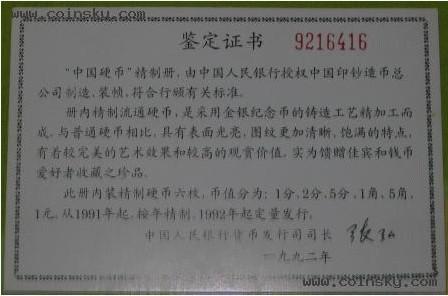 www.coinsky.com
鉴定证书 9216416
“中国硬币”精制册,由中国人民银行授权中国印钞造币总
公司制造、装帧,符合行颁有关标准。
册内精制流通硬币,是采用金银纪念币的铸造工艺精加工而
成,与普通硬币相比,具有表面光亮,图纹更加清晰,饱满的特点,
有着较完美的艺术效果和较高的观赏价值,实为馈赠佳宾和钱币
爱好者收藏之珍品。
此册内装精制硬币六枚,币值分为:1分,2分,5分,1角,5角,
1元,从1991年起,按年精制,1992年起定量发行。
中国人民银行货币发行司司长
一九九二年
www.coinsky.com